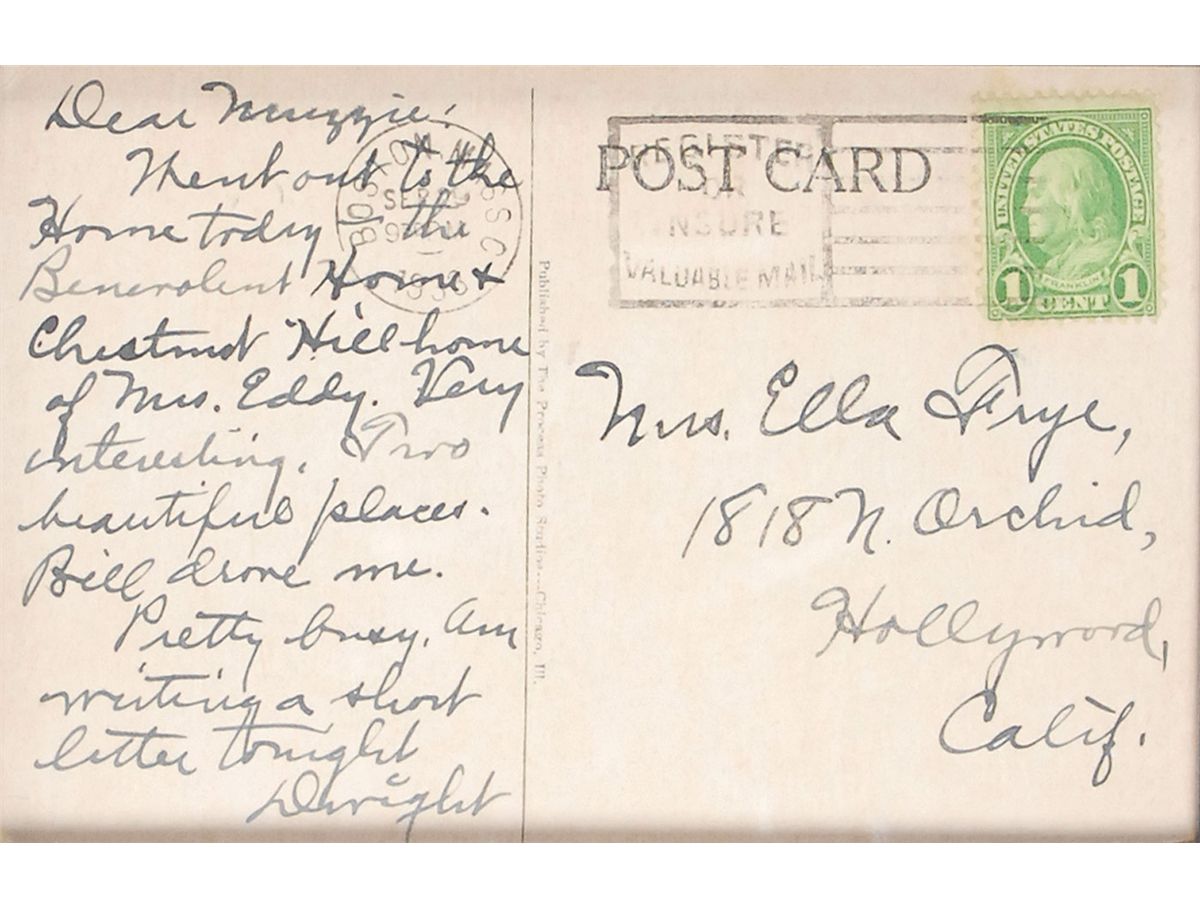 Dear Muzzie:
Went out to the
Home today – the
Benevolent Home &
Chestnut Hill home
of Mrs. Eddy. Very
interesting. Two
beautiful places.
Bill drove me.
Pretty busy. Am
writing a short
letter tonight
Dwight
BOSTON MASS C
SEP
193
Published by The Process Photo Studios Chicago, Ill.
POST CARD
REGISTER
OR
INSURE
VALUABLE MAIL
UNITED STATES POSTAGE
FRANKLIN
1 CENT 1
Mrs. Ella Frye,
1818 N. Orchid,
Hollywood,
Calif.